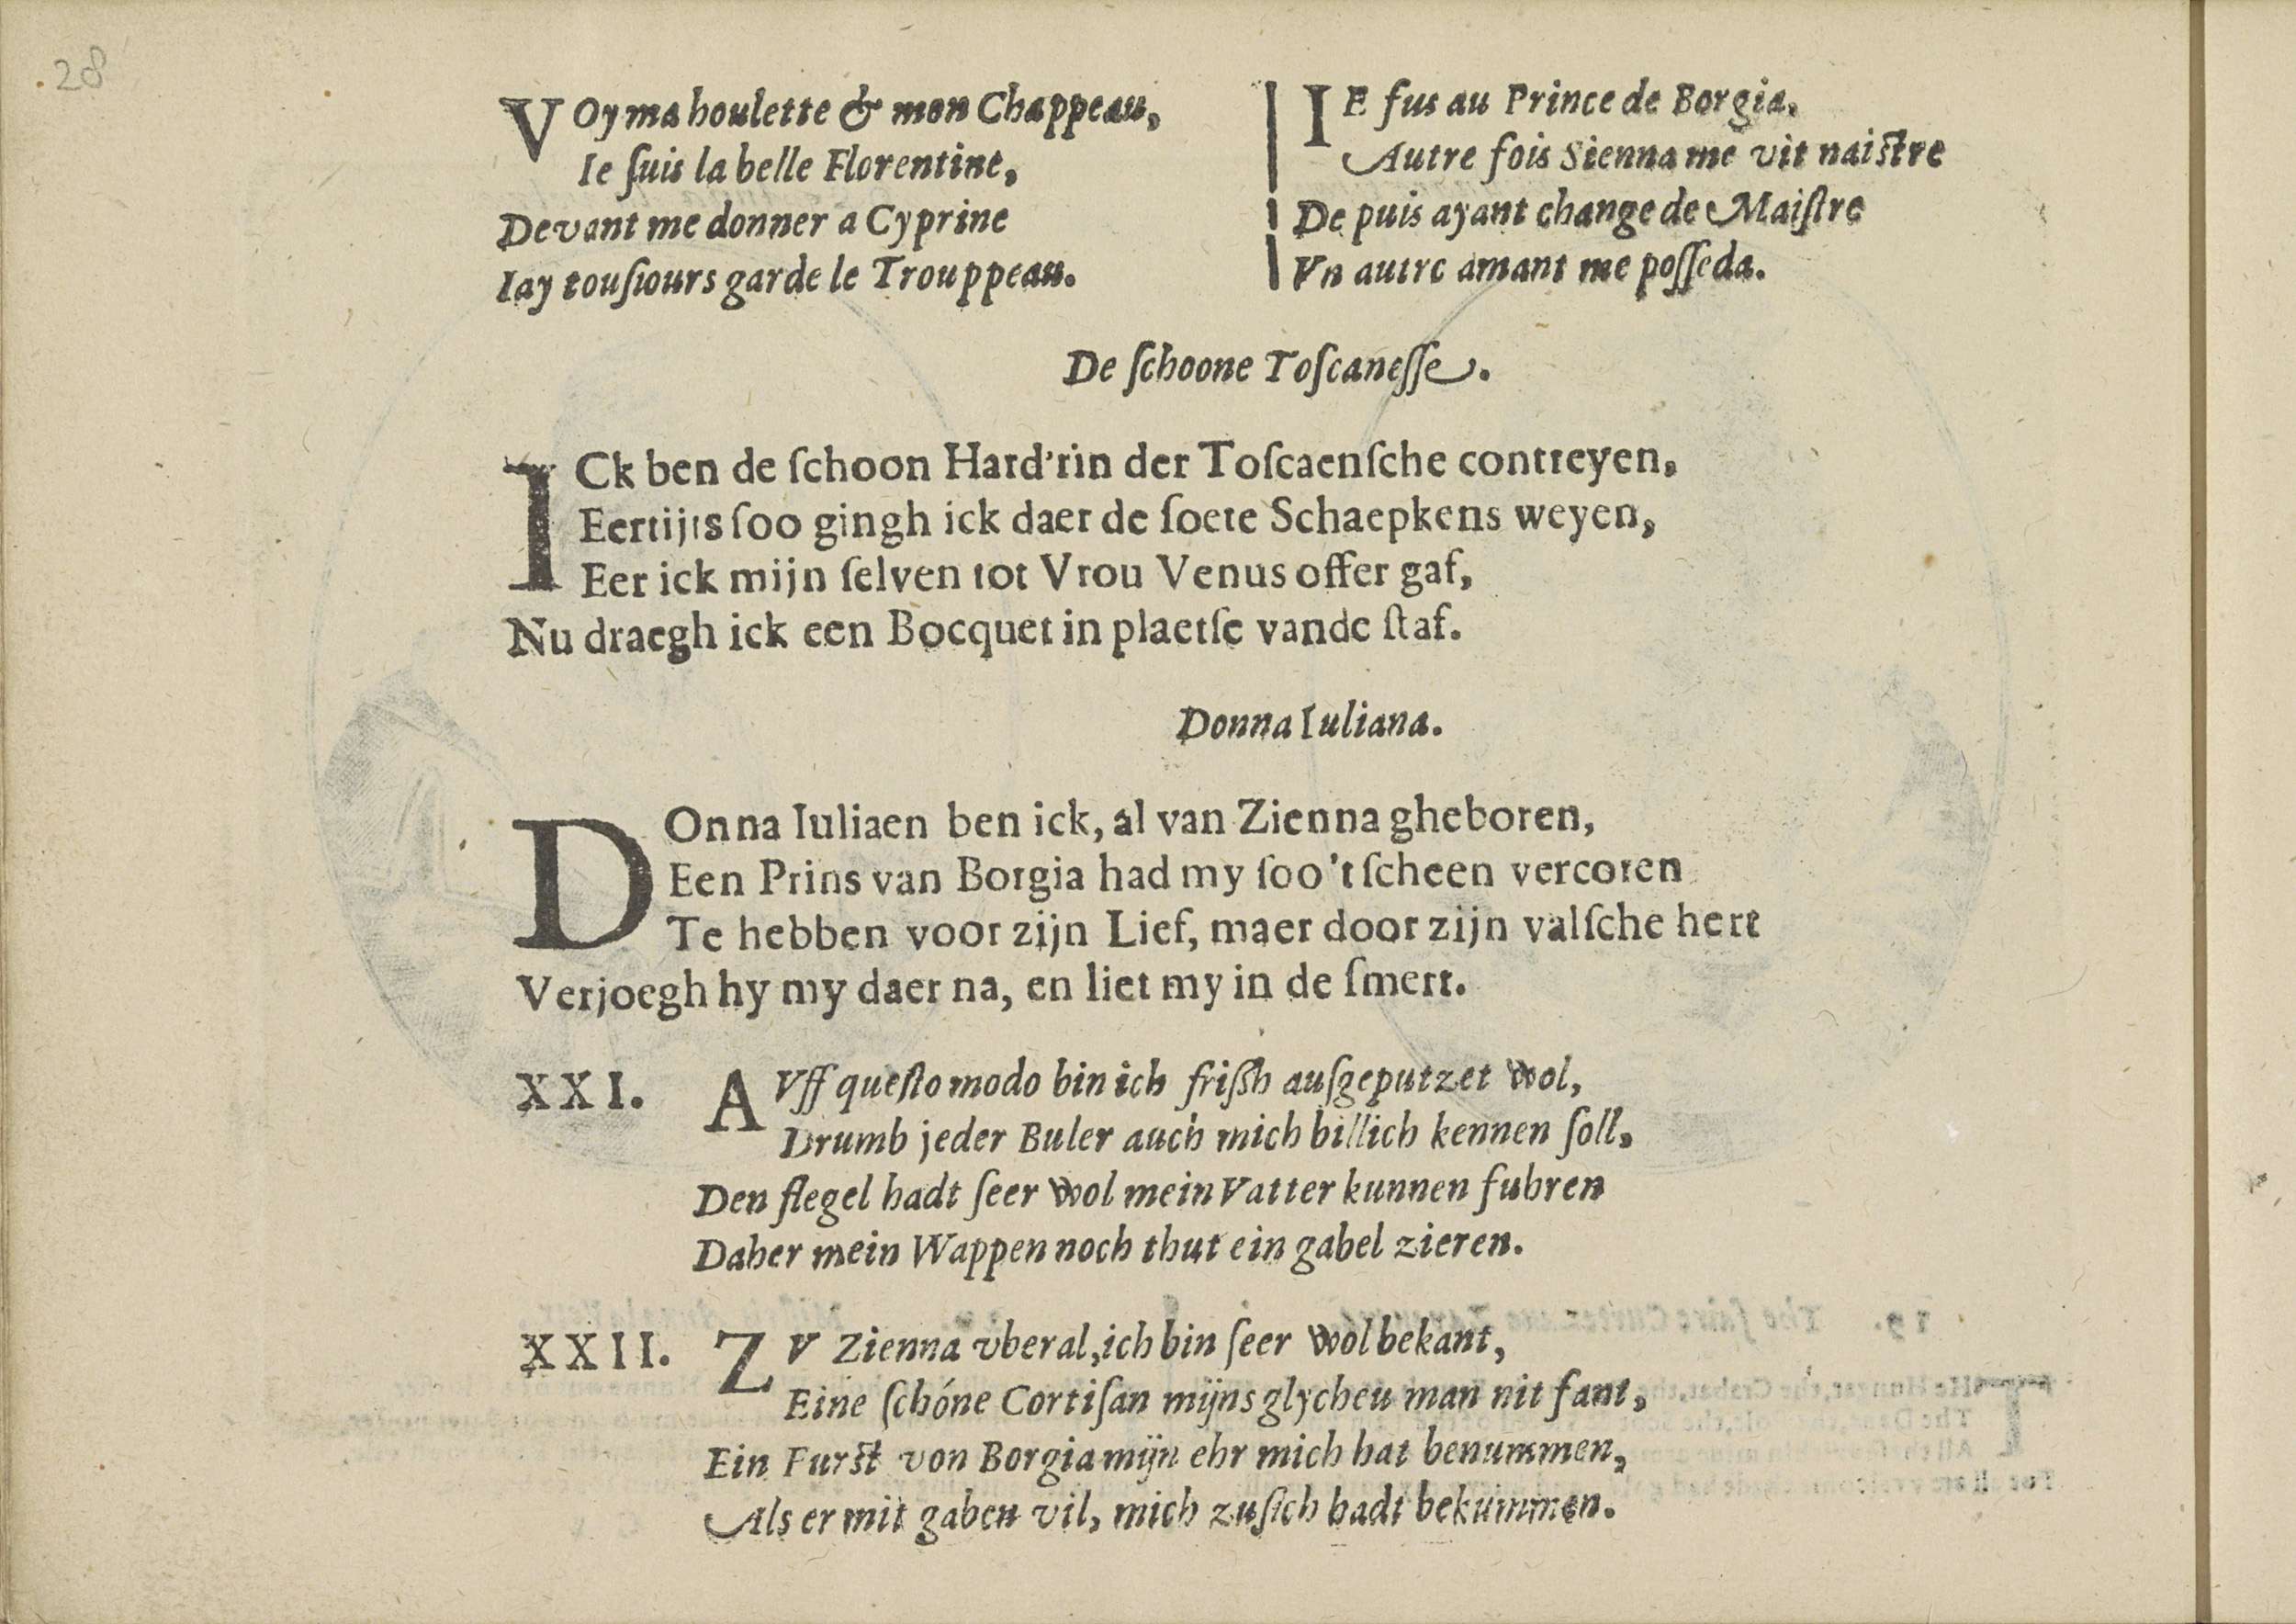 28
VOy ma houlette & mon Chappeau,
Ie ſuis la belle Florentine,
Devant me donner a Cyprine
Iay touſiours garde le Trouppeau.
IE fus au Prince de Borgia,
Autre fois Sienna me vit naiſtre
De puis ayant change de Maiſtre
Vn autre amant me poſſeda.
De ſchoone Toſcaneſſe.
ICk ben de ſchoon Hard'rin der Toſcaenſche contreyen,
Eertijts ſoo gingh ick daer de ſoete Schaepkens weyen,
Eer ick mijn ſelven tot Vrou Venus offer gaf,
Nu draegh ick een Bocquet in plaetſe vande ſtaf.
Donna Iuliana.
DOnna Iuliaen ben ick, al van Zienna gheboren,
Een Prins van Borgia had my ſoo't ſcheen vercoren
Te hebben voor zijn Lief, maer door zijn valſche hert
Verjoegh hy my daer na, en liet my in de ſmert.
XXI. AVff queſto modo bin ich frißh auſgeputzet wol,
Drumb jeder Buler auch mich billich kennen ſoll,
Den flegel hadt ſeer wol mein Vatter kunnen fuhren
Daher mein Wappen noch thut ein gabel zieren.
XXII. ZV Zienna vberal, ich bin ſeer wol bekant,
Eine ſchóne Cortiſan mijns glycheu man nit fant,
Ein Furſt von Borgia mijn ehr mich hat benummen,
Als er mit gaben vil, mich zuſich hadt bekummen.